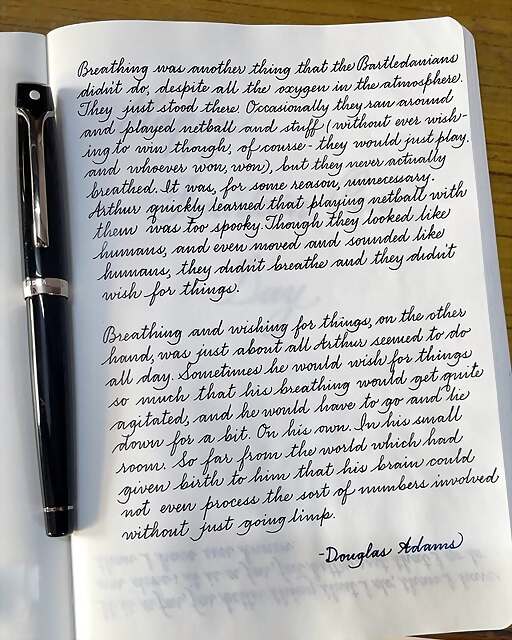 Breathing was another thing that the Bartledanians
didn't do, despite all the oxygen in the atmosphere.
They just stood there. Occasionally they ran around
and played netball and stuff (without ever wish-
ing to win though, of course - they would just play.
and whoever won, won), but they never actually
breathed. It was, for some reason, unnecessary.
Arthur quickly learned that playing netball with
them was too spooky. Though they looked like
humans, and even moved and sounded like
humans, they didn't breathe and they didn't
wish for things.
Breathing and wishing for things, on the other
hand, was just about all Arthur seemed to do
all day. Sometimes he would wish for things
so much that his breathing would get quite
agitated, and he would have to go and lie
down for a bit. On his own. In his small
room. So far from the world which had
given birth to him that his brain could
not even process the sort of numbers involved
without just going limp.
-Douglas Adams